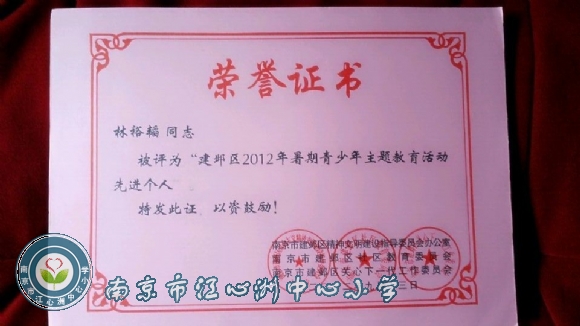 荣誉证书
林裕韬 同志
被评为“建邺区2012年暑期青少年主题教育活动
先进个人
特发此证，以资鼓励！
南京市建邺区精神文明建设指导委员会办公室
南京市建邺区社区教育委员会
南京市建邺区关心下一代工作委员会
南京市江心洲中心小学